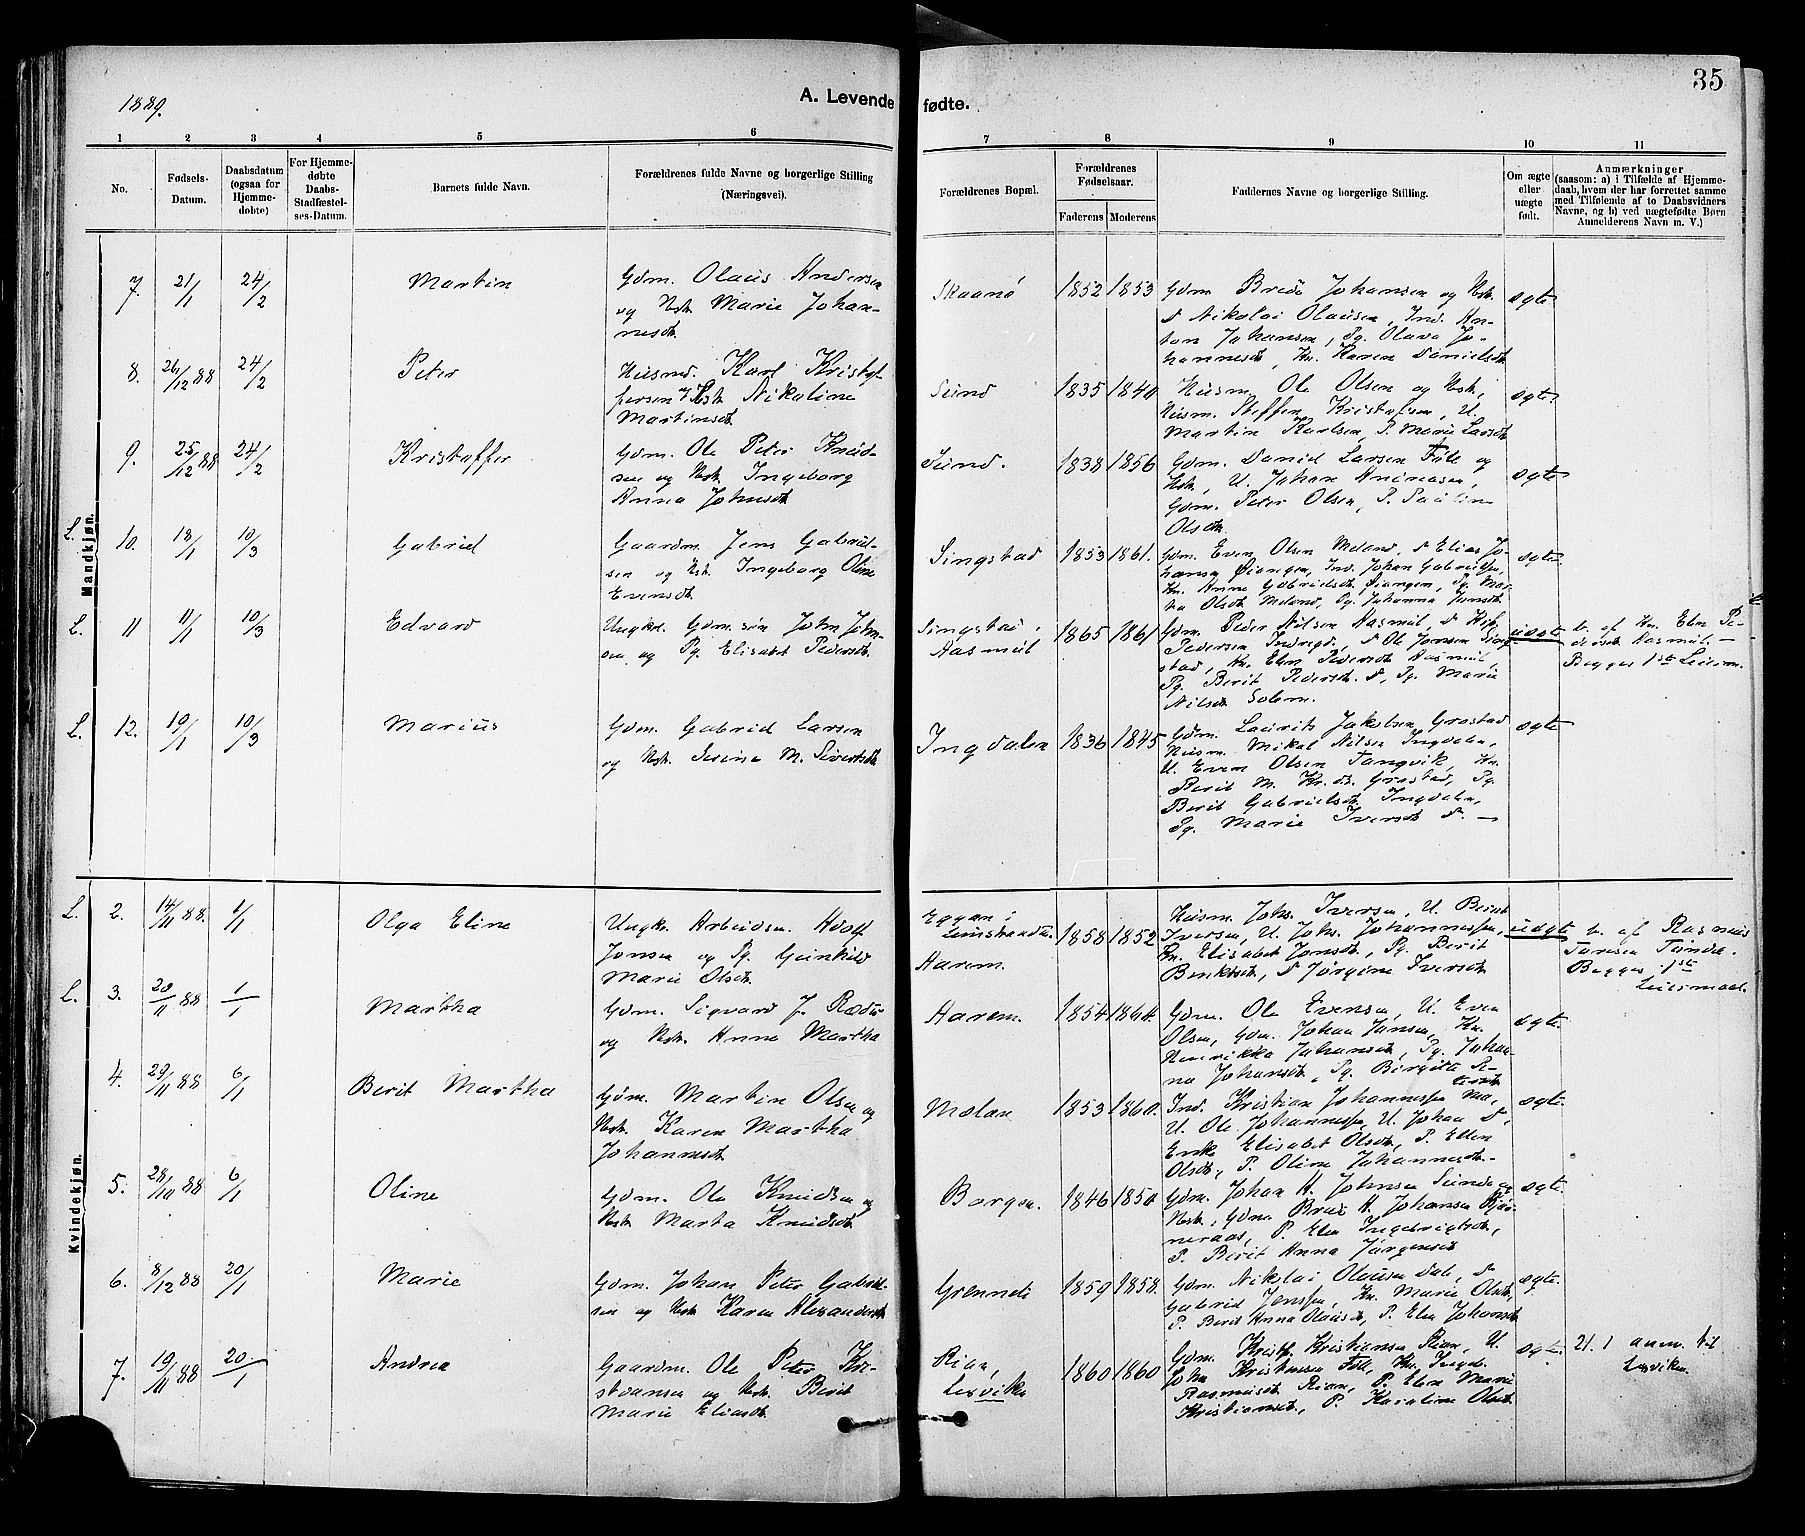 1889.
A. Levende fødte.
35
1 2 3 4 5 6 7 8 9 10 11
No.
Fødsels-
Datum.
Daabsdatum
(ogsaa for
Hjemme-
døbte)
For Hjemme-
døbte
Daabs-
Stadfæstel-
ses-Datum.
Barnets fulde Navn.
Forældrenes fulde Navne og borgerlige Stilling
(Næringsvei).
Forældrenes Bopæl.
Forældrenes
Fødselsaar.
Faderens Moderens
Faddernes Navne og borgerlige Stilling.
Om ægte
eller
uægte
født.
Anmærkninger
(saasom: a) i Tilfælde af Hjemme-
daab, hvem der har forrettet samme
med Tilføiende af to Daabsvidners
Navne, og b) ved uægtefødte Børn
Anmelderens Navn m. V.)
Mandkjøn.
7. 21/1 24/2 Martin
Gdm. Olaus Andersen
og Hstr. Marie Johan-
nesdt.
Skaanø 1852 1853
Gdm Brede Johansen og Hstr.
S Nikolai Olausen, Ind. An-
ton Johansen, Pg. Olava Jo-
hannesdt, Kn. Karen Danielsdt
ægte
8. 26/12 88 24/2 Peter
Husmd. Karl Kristof-
fersen og Hstr. Nikoline
Martinsdt.
Sund 1835 1840
Husm Ole Olsen og Hstr,
Husm. Steffen Kristofsen, U.
Martin Karlsen, P. Marie Larsdt
ægte
9. 25/12 88 24/2 Kristoffer
Gdm. Ole Peter Knud-
sen og Hstr. Ingeborg
Anna Johnsdt.
Sund. 1838 1856
Gdm. Daniel Larsen Field og
Hstr, U. Johan Andreasen,
Gdm. Peter Olsen, P. Pauline
Olsdtr
ægte
L. 10. 18/1 10/3 Gabriel
Gaardm. Jens Gabriel-
sen og Hstr. Ingeborg Oline
Evensdt.
Singstad 1853 1861.
Gdm. Even Olsen Meland, S Elias Jo-
hansen Øiangen, Ind. Johan Gabrielsen,
Kn. Anne Gabrielsdt. Øiangen, Pg. Mar-
ha Olsdt Meland, Pg. Johanna Jonsdt.
ægte.
L. 11 11/1 10/3 Edvard
Ungkrl. Gdm. søn John John-
sen og Pg. Elisabet Pedersdt.
Singstad,
Aasmul 1865 1861
Gdm. Peder Nilsen Aasmul, S
Pedersen S Ole Jonsen Sing-
stad, Kn. Elen Pedersdt. Aasmul,
Pg. Berit Pedersdt. S, Pg. Marie
Nilsdt Solem.
uægte
b. af Kn. Elen Pe-
dersdt Aasmul. —
Begges 1ste Leierm.
L. 12. 19/1 10/3 Marius
Gdm. Gabriel Larsen
og Hstr. Serina M. Sivertsdt.
Ingdalen 1836 1845
Gdm. Laurits Jakobsen Grostad
Husm. Mikal Nilsen Ingdalen,
U. Even Olsen Tangvik, Kn.
Berit M. Kr.dt. Grostad, Pg.
Berit Gabrielsdt Ingdalen,
Pg. Marie Iversdt S. —
ægte
Kvindekjøn.
L. 2. 14/11 88. 1/1 Olga Eline
Ungkr. Arbeidsm. Adolf
Jonsen og Pg. Gunhild
Marie Olsdt.
Eggan i
Leinstranden
Aarem. 1858 1852
Husm. Johs. Iversen, U. Berit
Iversen, U. Johs. Johannessen,
Kn. Elisabet Jonsdt., Pg. Berit
Benktsdt, S Jørgine Iversdt
uægte
b. af Rasmus
Toresen Tunda.
Begges 1ste
Leiermaal.
L. 3. 20/11 88 1/1 Martha
Gdm. Sigvard J. Rædes
og Hstr. Anne Martha
Aarem. 1854 1864.
Gdm. Ole Evensen, U. Even
Olsen, Gdm. Johan Jansen, Kn.
Henrikke Johansdt, Pg. Johan-
na Johansdt., Pg. Birgitte Pe-
tersdt
ægte.
4. 29/11 88 6/1 Berit Martha
Gdm. Martin Olsen og
Hstr. Karen Martha
Johannesdt.
Molan 1853 1860.
Ind. Kristian Johannessen Mo,
U. Ole Johannessen, U. Johan S,
Enke Elisabet Olsdt, P. Ellen
Olsdt, P. Oline Johannesdt.
ægte.
5. 28/10 88 6/1 Oline
Gdm. Ole Knudsen og
Hstr. Marta Knudsdt.
Borgen. 1846 1850.
Gdm. Johan H. Johnsen Sunde og
Hstr., Gdm. Brede H. Johansen Bjør-
neraas, P. Elen Ingebrigtsdt,
P. Berit Anna Jørgensdt
ægte.
6. 8/12 88 20/1 Marie
Gdm. Johan Peter Gabriel-
sen og Hstr. Karen Alexandersdt.
Grønneli 1859 1858.
Gdm. Nikolai Olausen Dal, S
Gabriel Jenssen, Kn. Marie Olsdt,
P. Berit Anna Olausdt, P. Elen Johansdt
ægte.
7. 19/11 88 20/1 Andrea
Gaardm. Ole Peter Kri-
stiansen og Hstr. Berit
Marie Eliasdt.
Rian,
Lexviken 1860 1860
Gdm. Kristf. Kristiansen Rian, U.
John Kristiansen Kn. Ingeb.
Rasmusdt Rian, P. Elen Marie
Kristiansdt., P. Karoline Olsdt
ægte.
21.1 anm. til
Lexviken.